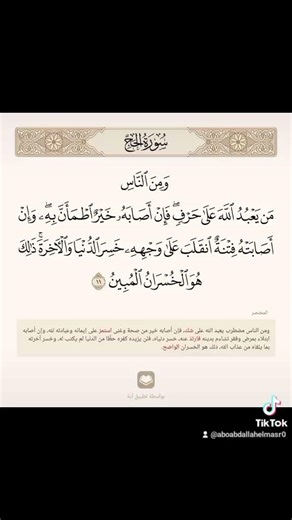 سُورَةُ الحَجِّ
وَمِنَ النَّاسِ
مَن يَعْبُدُ اللَّهَ عَلَىٰ حَرْفٍ ۖ فَإِنْ أَصَابَهُ خَيْرٌ اطْمَأَنَّ بِهِ ۖ وَإِنْ
أَصَابَتْهُ فِتْنَةٌ انقَلَبَ عَلَىٰ وَجْهِهِ خَسِرَ الدُّنْيَا وَالْآخِرَةَ ۚ ذَٰلِكَ
هُوَ الْخُسْرَانُ الْمُبِينُ ١١
المختصر
ومن الناس مضطرب يعبد الله على شك، فإن أصابه خير من صحة وغنى استمر على إيمانه وعبادته لله، وإن أصابه
ابتلاء بمرض وفقر تشاءم بدينه فارتد عنه، خسر دنياه، فلن يزيده كفره حظًا من الدنيا لم يكتب له، وخسر آخرته
بما يلقاه من عذاب الله، ذلك هو الخسران الواضح.
بواسطة تطبيق آية
TikTok
@aboabdallahelmasr0